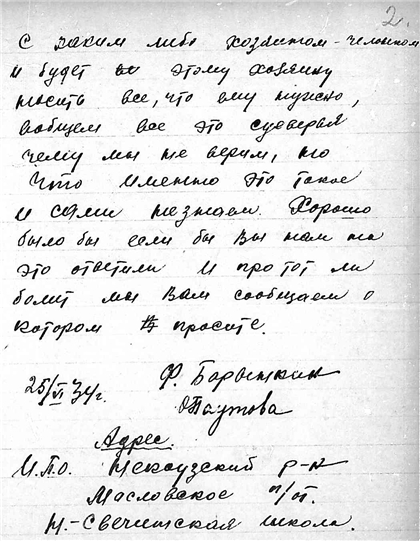 2.
с каким либо хозяином-человеком
и будет этому хозяину
носить все, что ему нужно,
вообщем все это суеверья
чему мы не верим, но
что именно это такое
и сами незнаем. Хорошо
было бы если бы Вы нам на
это ответили и про тот ли
болит мы Вам сообщаем о
котором просите.
25/VI 34г. Ф. Барышкин
Паутова
Адрес.
И.П.О. Некоузский р-н
Масловское п/от.
Н.-Свечинская школа.